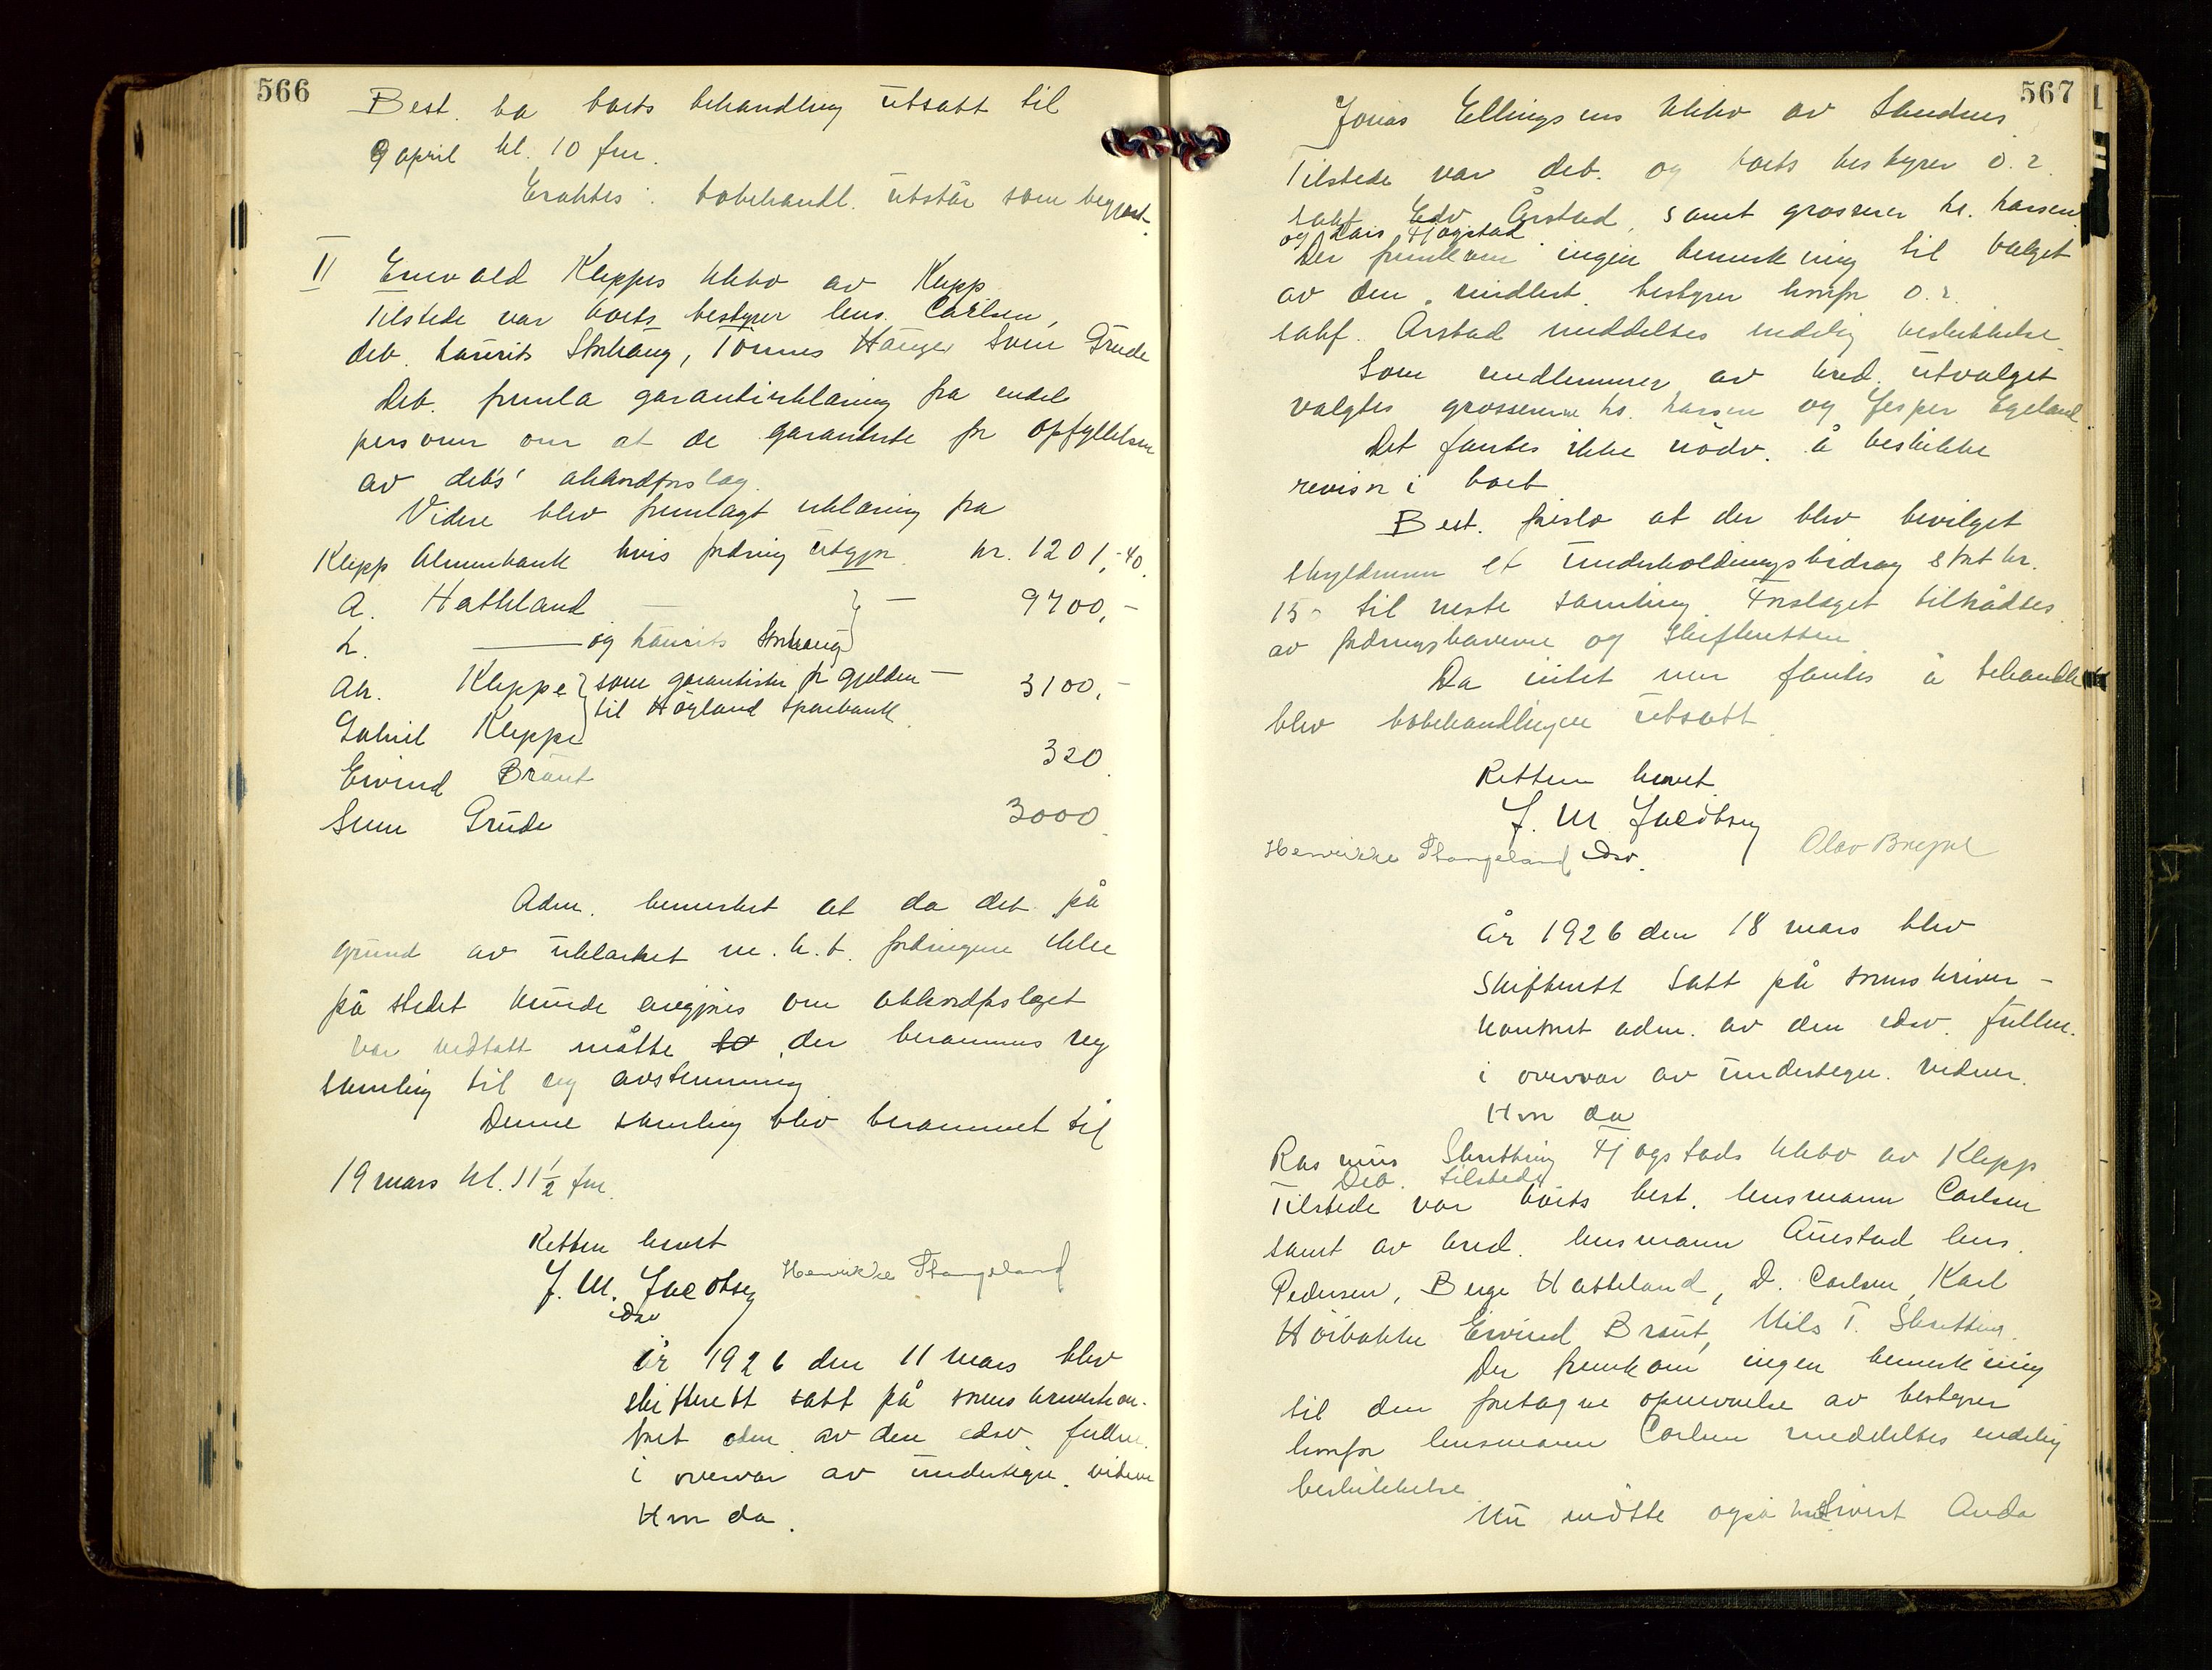 566
Best. ba boets behandling utsatt til
9 april kl. 10 fm.
Eraktes: bobehandl. utstår som begjært.
II Enevald Kleppes kkbo av Klepp
Tilstede var boets bestyrer lens. Carlsen,
deb. Laurits Storhaug, Tönnes Hauge, Sven Grude
Deb. fremla garantierklæring fra endel
personer om at de garanterte for opfyllelsen
av debs' akkordforslag.
Videre blev fremlagt erklæring fra
Klepp Almenbank hvis fordring utgjør kr. 1201,40.
A. Hatteland — } — 9700,-
L. —— og Laurits Storhaug }
Ah. Kleppe } som garantister for gjelden — 3100,-
Gabriel Kleppe } til Höyland Sparebank
Eivind Braut 320.
Sven Grude 3000.
Adm. bemerket at da det på
grund av uklarhet m.h.t. fordringene ikke
på stedet kunde avgjøres om akkordforslaget
var vedtatt måtte der berammes ny
samling til ny avstemning.
Denne samling blev berammet til
19 mars kl. 11 1/2 fm.
Retten hevet
J. M. Jacobsen Henrikke Stangeland
edsv
År 1926 den 11 mars blev
skifterett satt på sorenskriverkon-
toret adm. av den edsv. fullm.
i overvær av undertegn. vidner
Hvor da.
567
Jonas Ellingsens kkbo av Sandnes.
Tilstede var deb. og boets bestyrer o.r.
sakf. Edv. Årstad, samt grosserer hr. Larsen
og Lars Fjogstad.
Der fremkom ingen bemerkning til valget
av den midlert. bestyrer hvorfor o.r.
sakf. Arstad meddeltes endelig beskikkelse.
Som medlemmer av kred. utvalget
valgtes grossererne hr. Larsen og Jesper Egeland
Det fantes ikke nödv. å beskikke
revisor i boet.
Best. foreslo at der blev bevilget
skyldneren et underholdningsbidrag stort kr.
150 til neste samling. Forslaget tiltrådtes
av fordringshaverne og skifteretten.
Da intet mer fantes å behandle
blev bobehandlingen utsatt.
Retten hevet
J. M. Jacobsen
Henrikke Stangeland edsv. Olav
År 1926 den 18 mars blev
Skifterett satt på sorenskriver-
kontoret adm. av den edsv. fullm.
i overvær av undertegn. vidner.
Hvor da
Rasmus Skretting Fjogstads kkbo av Klepp
Deb. tilstede
Tilstede var boets best. lensmann Carlsen
samt av kred. lensmann Aüestad lens.
Pedersen, Berge Hatteland, D. Carlsen, Karl
Höibakke Eivind Braut, Nils T. Skretting.
Der fremkom ingen bemerkning
til den foretagne opnevnelse av bestyrer
hvorfor lensmann Carlsen meddeltes endelig
beskikkelse.
Nu mötte også Sivert Anda